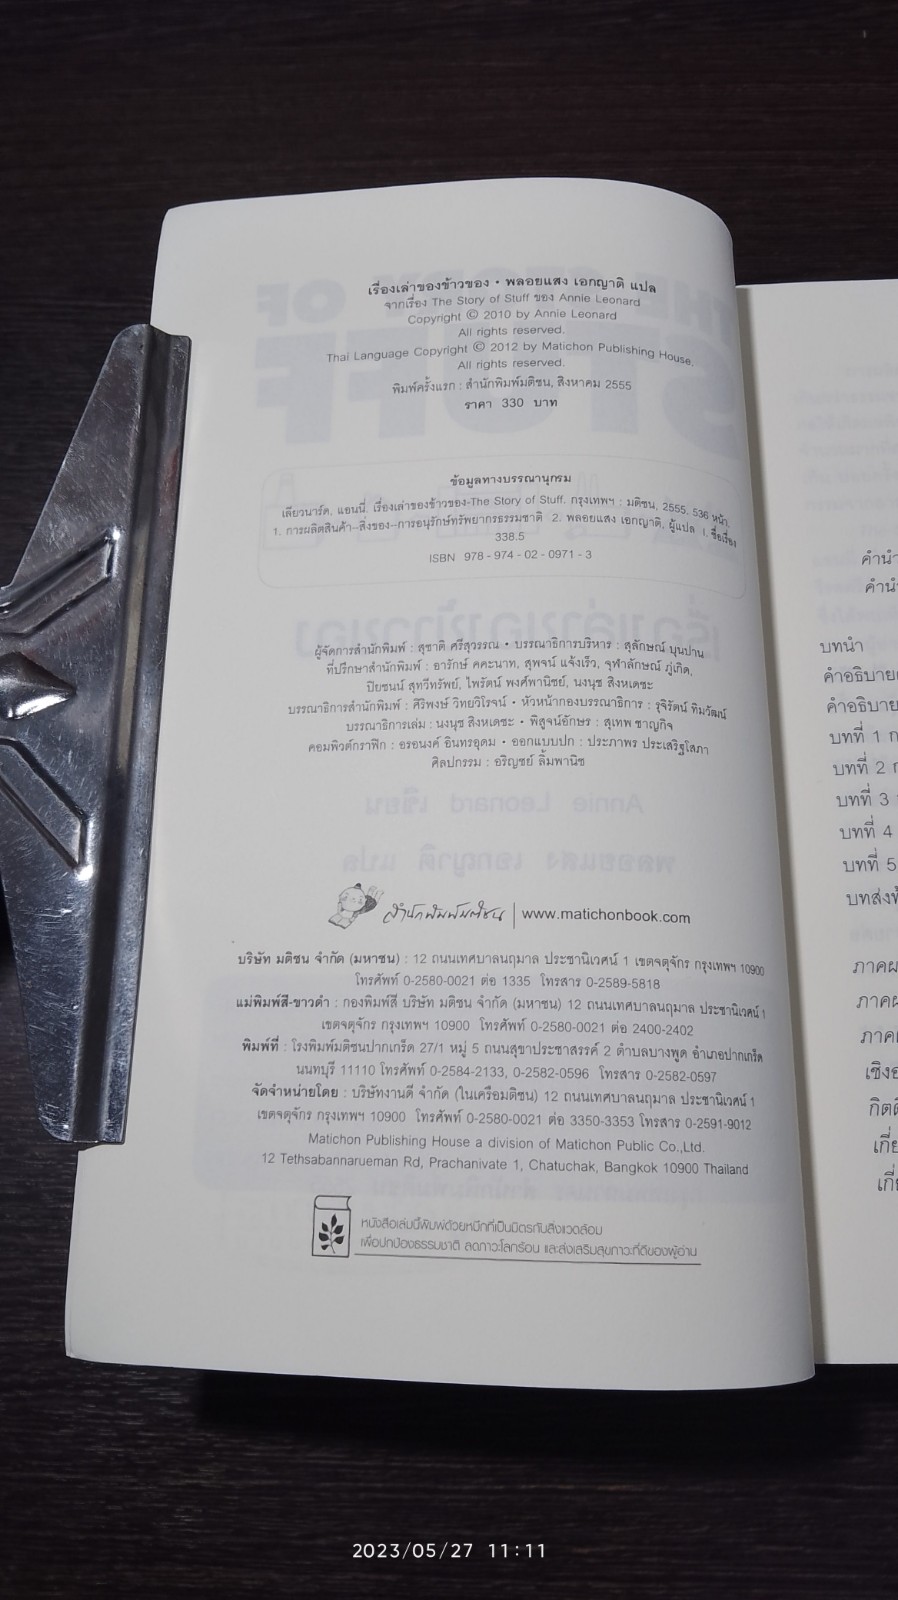 เรื่องเล่าของข้าวของ • พลอยแสง เอกญาติ แปล
จากเรื่อง The Story of Stuff ของ Annie Leonard
Copyright © 2010 by Annie Leonard
All rights reserved.
Thai Language Copyright © 2012 by Matichon Publishing House.
All rights reserved.
พิมพ์ครั้งแรก : สำนักพิมพ์มติชน, สิงหาคม 2555
ราคา 330 บาท
ข้อมูลทางบรรณานุกรม
เลียวนาร์ด, แอนนี่. เรื่องเล่าของข้าวของ-The Story of Stuff. กรุงเทพฯ : มติชน, 2555. 536 หน้า.
1. การผลิตสินค้า--สิ่งของ--การอนุรักษ์ทรัพยากรธรรมชาติ 2. พลอยแสง เอกญาติ, ผู้แปล I. ชื่อเรื่อง
338.5
ISBN 978 - 974 - 02 - 0971 - 3
ผู้จัดการสำนักพิมพ์ : สุชาติ ศรีสุวรรณ • บรรณาธิการบริหาร : สุลักษณ์ บุนปาน
ที่ปรึกษาสำนักพิมพ์ : อารักษ์ คคะนาท, สุพจน์ แจ้งเร็ว, จุฬาลักษณ์ ภู่เกิด,
ปิยชนน์ สุทวีทรัพย์, ไพรัตน์ พงศ์พานิชย์, นงนุช สิงหเดชะ
บรรณาธิการสำนักพิมพ์ : ศิริพงษ์ วิทยวิโรจน์ • หัวหน้ากองบรรณาธิการ : รุจิรัตน์ ทิมวัฒน์
บรรณาธิการเล่ม : นงนุช สิงหเดชะ • พิสูจน์อักษร : สุเทพ ชาญกิจ
คอมพิวต์กราฟิก : อรอนงค์ อินทรอุดม • ออกแบบปก : ประภาพร ประเสริฐโสภา
ศิลปกรรม : อริญชย์ ลิ้มพานิช
สำนักพิมพ์มติชน | www.matichonbook.com
บริษัท มติชน จำกัด (มหาชน) : 12 ถนนเทศบาลนฤมาล ประชานิเวศน์ 1 เขตจตุจักร กรุงเทพฯ 10900
โทรศัพท์ 0-2580-0021 ต่อ 1335 โทรสาร 0-2589-5818
แม่พิมพ์สี-ขาวดำ : กองพิมพ์สี บริษัท มติชน จำกัด (มหาชน) 12 ถนนเทศบาลนฤมาล ประชานิเวศน์ 1
เขตจตุจักร กรุงเทพฯ 10900 โทรศัพท์ 0-2580-0021 ต่อ 2400-2402
พิมพ์ที่ : โรงพิมพ์มติชนปากเกร็ด 27/1 หมู่ 5 ถนนสุขาประชาสรรค์ 2 ตำบลบางพูด อำเภอปากเกร็ด
นนทบุรี 11110 โทรศัพท์ 0-2584-2133, 0-2582-0596 โทรสาร 0-2582-0597
จัดจำหน่ายโดย : บริษัทงานดี จำกัด (ในเครือมติชน) 12 ถนนเทศบาลนฤมาล ประชานิเวศน์ 1
เขตจตุจักร กรุงเทพฯ 10900 โทรศัพท์ 0-2580-0021 ต่อ 3350-3353 โทรสาร 0-2591-9012
Matichon Publishing House a division of Matichon Public Co.,Ltd.
12 Tethsabannarueman Rd, Prachanivate 1, Chatuchak, Bangkok 10900 Thailand
หนังสือเล่มนี้พิมพ์ด้วยหมึกที่เป็นมิตรกับสิ่งแวดล้อม
เพื่อปกป้องธรรมชาติ ลดภาวะโลกร้อน และส่งเสริมสุขภาวะที่ดีของผู้อ่าน
คำนำ
คำนำ
บทนำ
คำอธิบาย
คำอธิบาย
บทที่ 1
บทที่ 2
บทที่ 3
บทที่ 4
บทที่ 5
2023/05/27 11:11